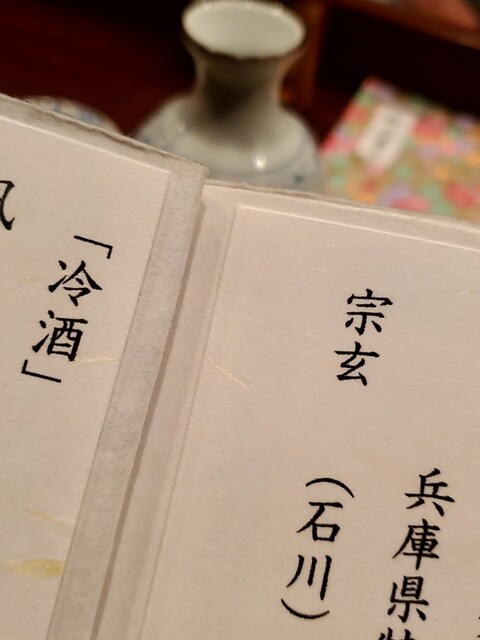 兵庫県
宗玄 (石川)
「冷酒」